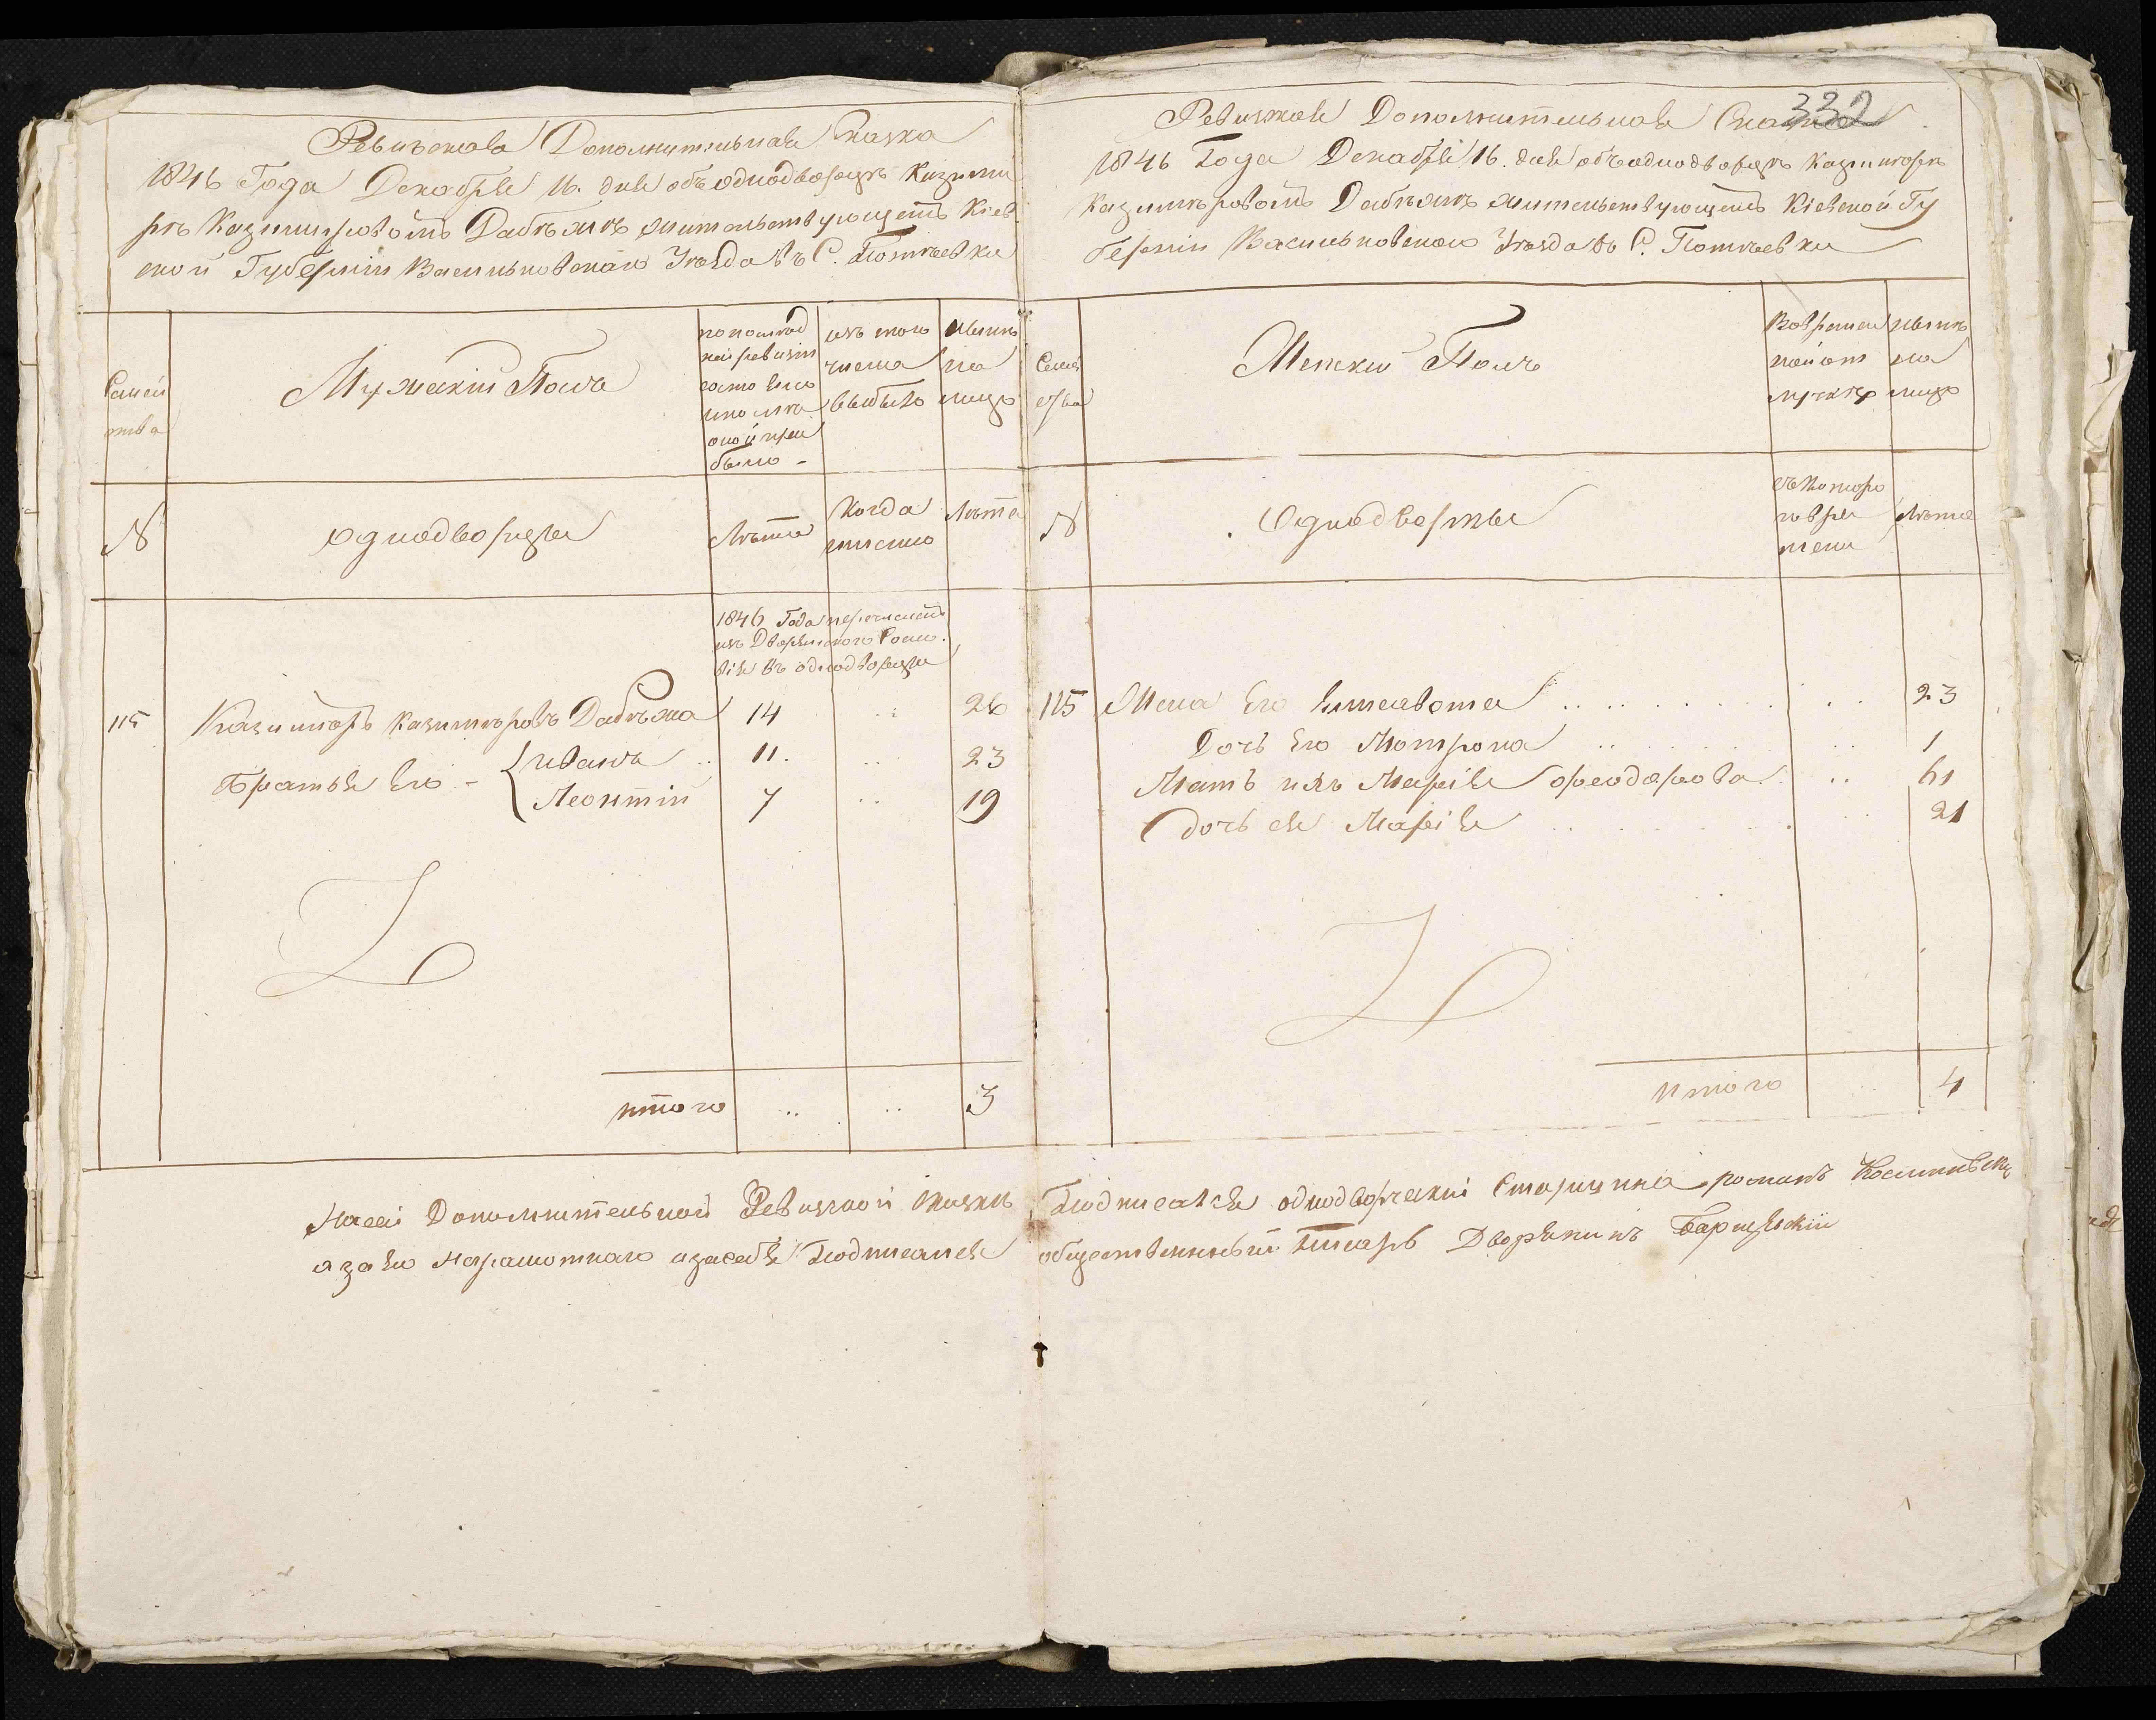 Ревизская Дополнительная Сказка
1846 Года Декабря 16. дня объ однодворцъ Казими
ръ Казимировомъ Дабъжъ жительствующемъ Кіев
ской Губерніи Васильковскаго Уъзда въ С. Потъевки
Семей
ства
Мужескій Полъ
по послъд
ней ревизіи
состояло
и послъ
оной
было -
изъ того
числа
выбыло
нынъ
на
лицо
N
однодворцы
Лъта
Когда
именно
Лъта
1846 Года перечисленъ
изъ Дворянского Сосло.
вія въ однодворцы
115 Казимиръ Казимировъ Дабъжа 14 .. 26
Братья Его - Иванъ .. 11. .. 23
Леонтій 7 .. 19
итого .. .. 3
332
Ревизская Дополнительная Сказка
1846 Года Декабря 16. дня объ однодворцъ Казимиръ
Казимировомъ Дабъжъ жительствующемъ Кіевской Гу
берніи Васильковскаго Уъзда въ С. Потъевки
Семей
ства
Женскій Полъ
Во времен
ной от
лучкъ
нынъ
на
лицо
N
Однодворки
съ которо
го вре
мени
Лъта
115 Жена Его Елисавета .. .. 23
Дочь Его Мотрона .. .. 1
Мать ихъ Марія Феодорова .. 61
Дочь ея Марія .. .. 21
Итого .. 4
К сей Дополнительной Ревизской Сказкъ Подписался однодворческій Старшина романъ
а за его неграмотнаго и за себя Подписался общественный Писарь Дворянинъ Барщевскій